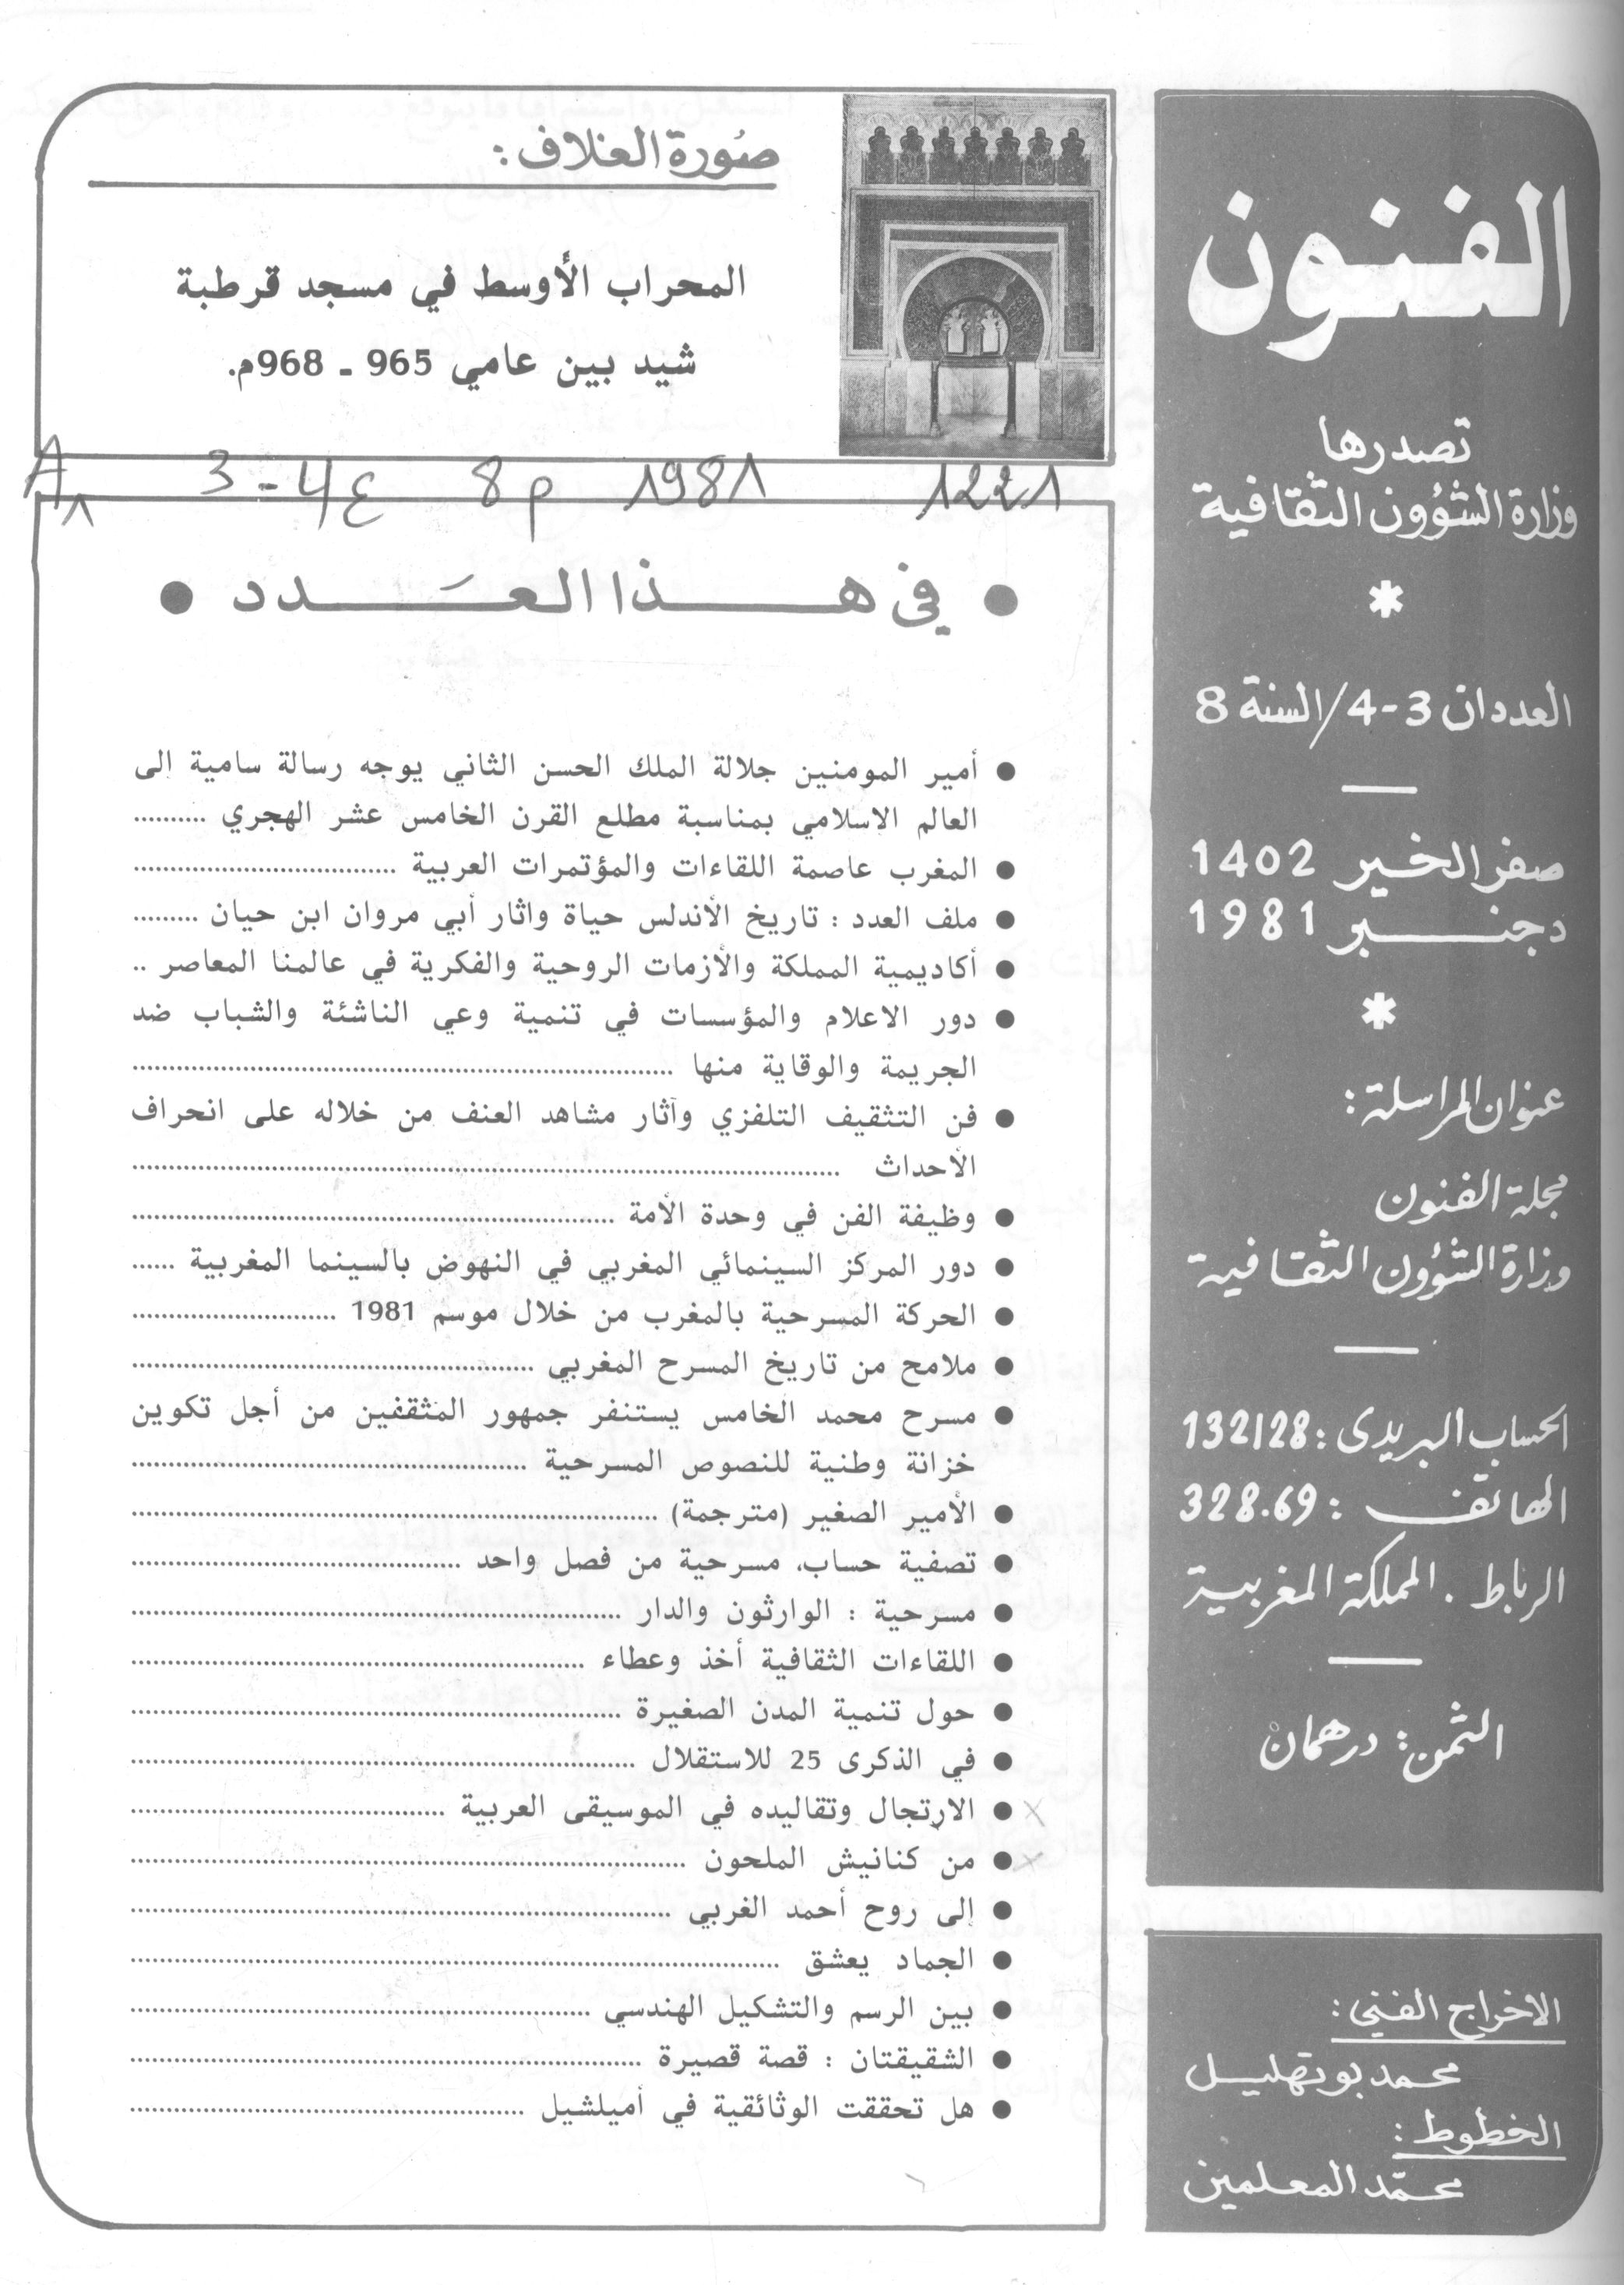 الفنون
تصدرها
وزارة الشؤون الثقافية
*
العددان 3-4/السنة 8
صفر الخير 1402
دجنبر 1981
*
عنوان المراسلة:
مجلة الفنون
وزارة الشؤون الثقافية
الحساب البريدى: 132128
الهاتف: 328.69
الرباط. المملكة المغربية
الثمن: درهمان
الاخراج الفني:
محمد بوتهليل
الخطوط:
محمّد المعلمين
صُورة الغلاف:
المحراب الأوسط في مسجد قرطبة
شيد بين عامي 965 - 968م.
A1 3-4ع 8p 1981 1221
● في هذا العَدد ●
● أمير المومنين جلالة الملك الحسن الثاني يوجه رسالة سامية إلى
العالم الاسلامي بمناسبة مطلع القرن الخامس عشر الهجري ..........
● المغرب عاصمة اللقاءات والمؤتمرات العربية ....................
● ملف العدد : تاريخ الأندلس حياة واثار أبي مروان ابن حيان .........
● أكاديمية المملكة والأزمات الروحية والفكرية في عالمنا المعاصر ..
● دور الاعلام والمؤسسات في تنمية وعي الناشئة والشباب ضد
الجريمة والوقاية منها ....................
● فن التثقيف التلفزي وآثار مشاهد العنف من خلاله على انحراف
الأحداث ....................
● وظيفة الفن في وحدة الأمة ....................
● دور المركز السينمائي المغربي في النهوض بالسينما المغربية ......
● الحركة المسرحية بالمغرب من خلال موسم 1981 ....................
● ملامح من تاريخ المسرح المغربي ....................
● مسرح محمد الخامس يستنفر جمهور المثقفين من أجل تكوين
خزانة وطنية للنصوص المسرحية ....................
● الأمير الصغير (مترجمة) ....................
● تصفية حساب، مسرحية من فصل واحد ....................
● مسرحية : الوارثون والدار ....................
● اللقاءات الثقافية أخذ وعطاء ....................
● حول تنمية المدن الصغيرة ....................
● في الذكرى 25 للاستقلال ....................
× ● الارتجال وتقاليده في الموسيقى العربية ....................
× ● من كنانيش الملحون ....................
● إلى روح أحمد الغربي ....................
● الجماد يعشق ....................
● بين الرسم والتشكيل الهندسي ....................
● الشقيقتان : قصة قصيرة ....................
● هل تحققت الوثائقية في أميلشيل ....................